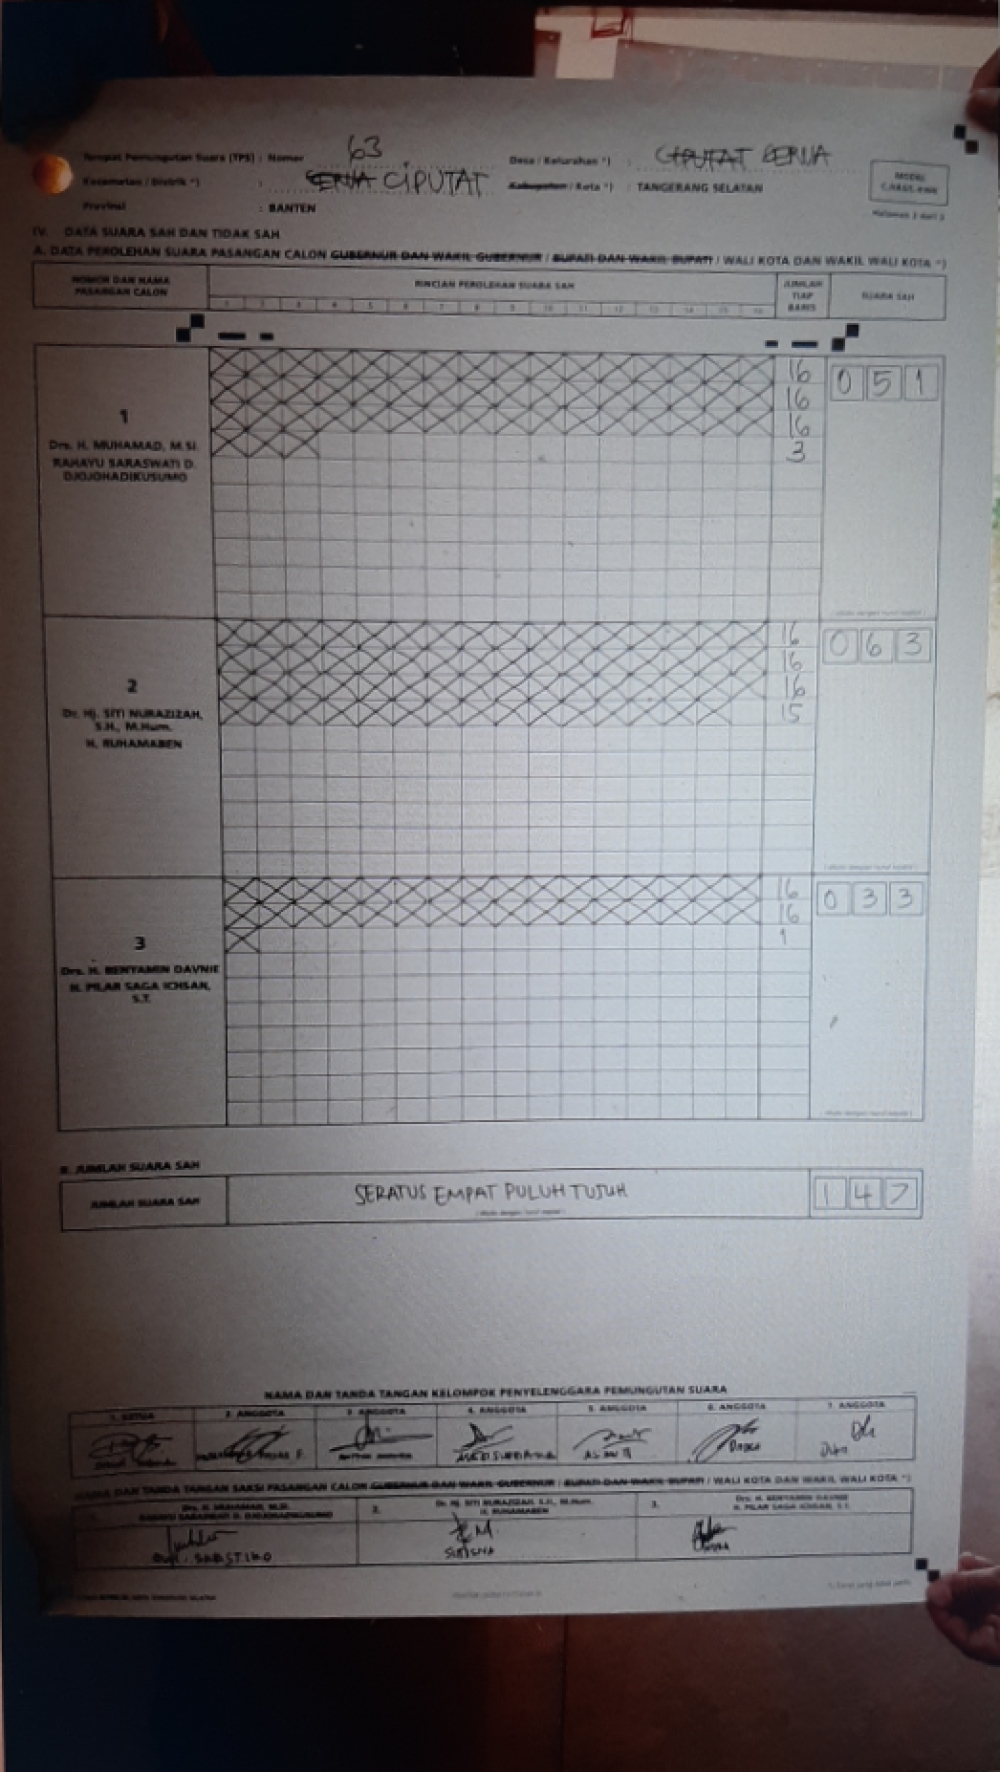 Tempat Pemungutan Suara (TPS) : Nomor 63
Desa / Kelurahan *) : CIPUTAT SERUA
Kecamatan / Distrik *) : SERUA CIPUTAT
Kabupaten / Kota *) : TANGERANG SELATAN
Provinsi : BANTEN
MODEL C.HASIL-KWK
Halaman 2 dari 3
IV. DATA SUARA SAH DAN TIDAK SAH
A. DATA PEROLEHAN SUARA PASANGAN CALON GUBERNUR DAN WAKIL GUBERNUR / BUPATI DAN WAKIL BUPATI / WALI KOTA DAN WAKIL WALI KOTA *)
NOMOR DAN NAMA PASANGAN CALON
RINCIAN PEROLEHAN SUARA SAH
JUMLAH TIAP BARIS
SUARA SAH
1 2 3 4 5 6 7 8 9 10 11 12 13 14 15 16
1
Drs. H. MUHAMAD, M.Si.
RAHAYU SARASWATI D.
DJOJOHADIKUSUMO
16
16
16
3
0 5 1
2
Dr. Hj. SITI NURAZIZAH,
S.H., M.Hum.
H. RUHAMABEN
16
16
16
15
0 6 3
3
Drs. H. BENYAMIN DAVNIE
H. PILAR SAGA ICHSAN,
S.T.
16
16
1
0 3 3
B. JUMLAH SUARA SAH
JUMLAH SUARA SAH
SERATUS EMPAT PULUH TUJUH
1 4 7
NAMA DAN TANDA TANGAN KELOMPOK PENYELENGGARA PEMUNGUTAN SUARA
1. KETUA 2. ANGGOTA 3. ANGGOTA 4. ANGGOTA 5. ANGGOTA 6. ANGGOTA 7. ANGGOTA
NAMA DAN TANDA TANGAN SAKSI PASANGAN CALON GUBERNUR DAN WAKIL GUBERNUR / BUPATI DAN WAKIL BUPATI / WALI KOTA DAN WAKIL WALI KOTA *)
Drs. H. MUHAMAD, M.Si.
RAHAYU SARASWATI D. DJOJOHADIKUSUMO
2. Dr. Hj. SITI NURAZIZAH, S.H., M.Hum.
H. RUHAMABEN
3. Drs. H. BENYAMIN DAVNIE
H. PILAR SAGA ICHSAN, S.T.